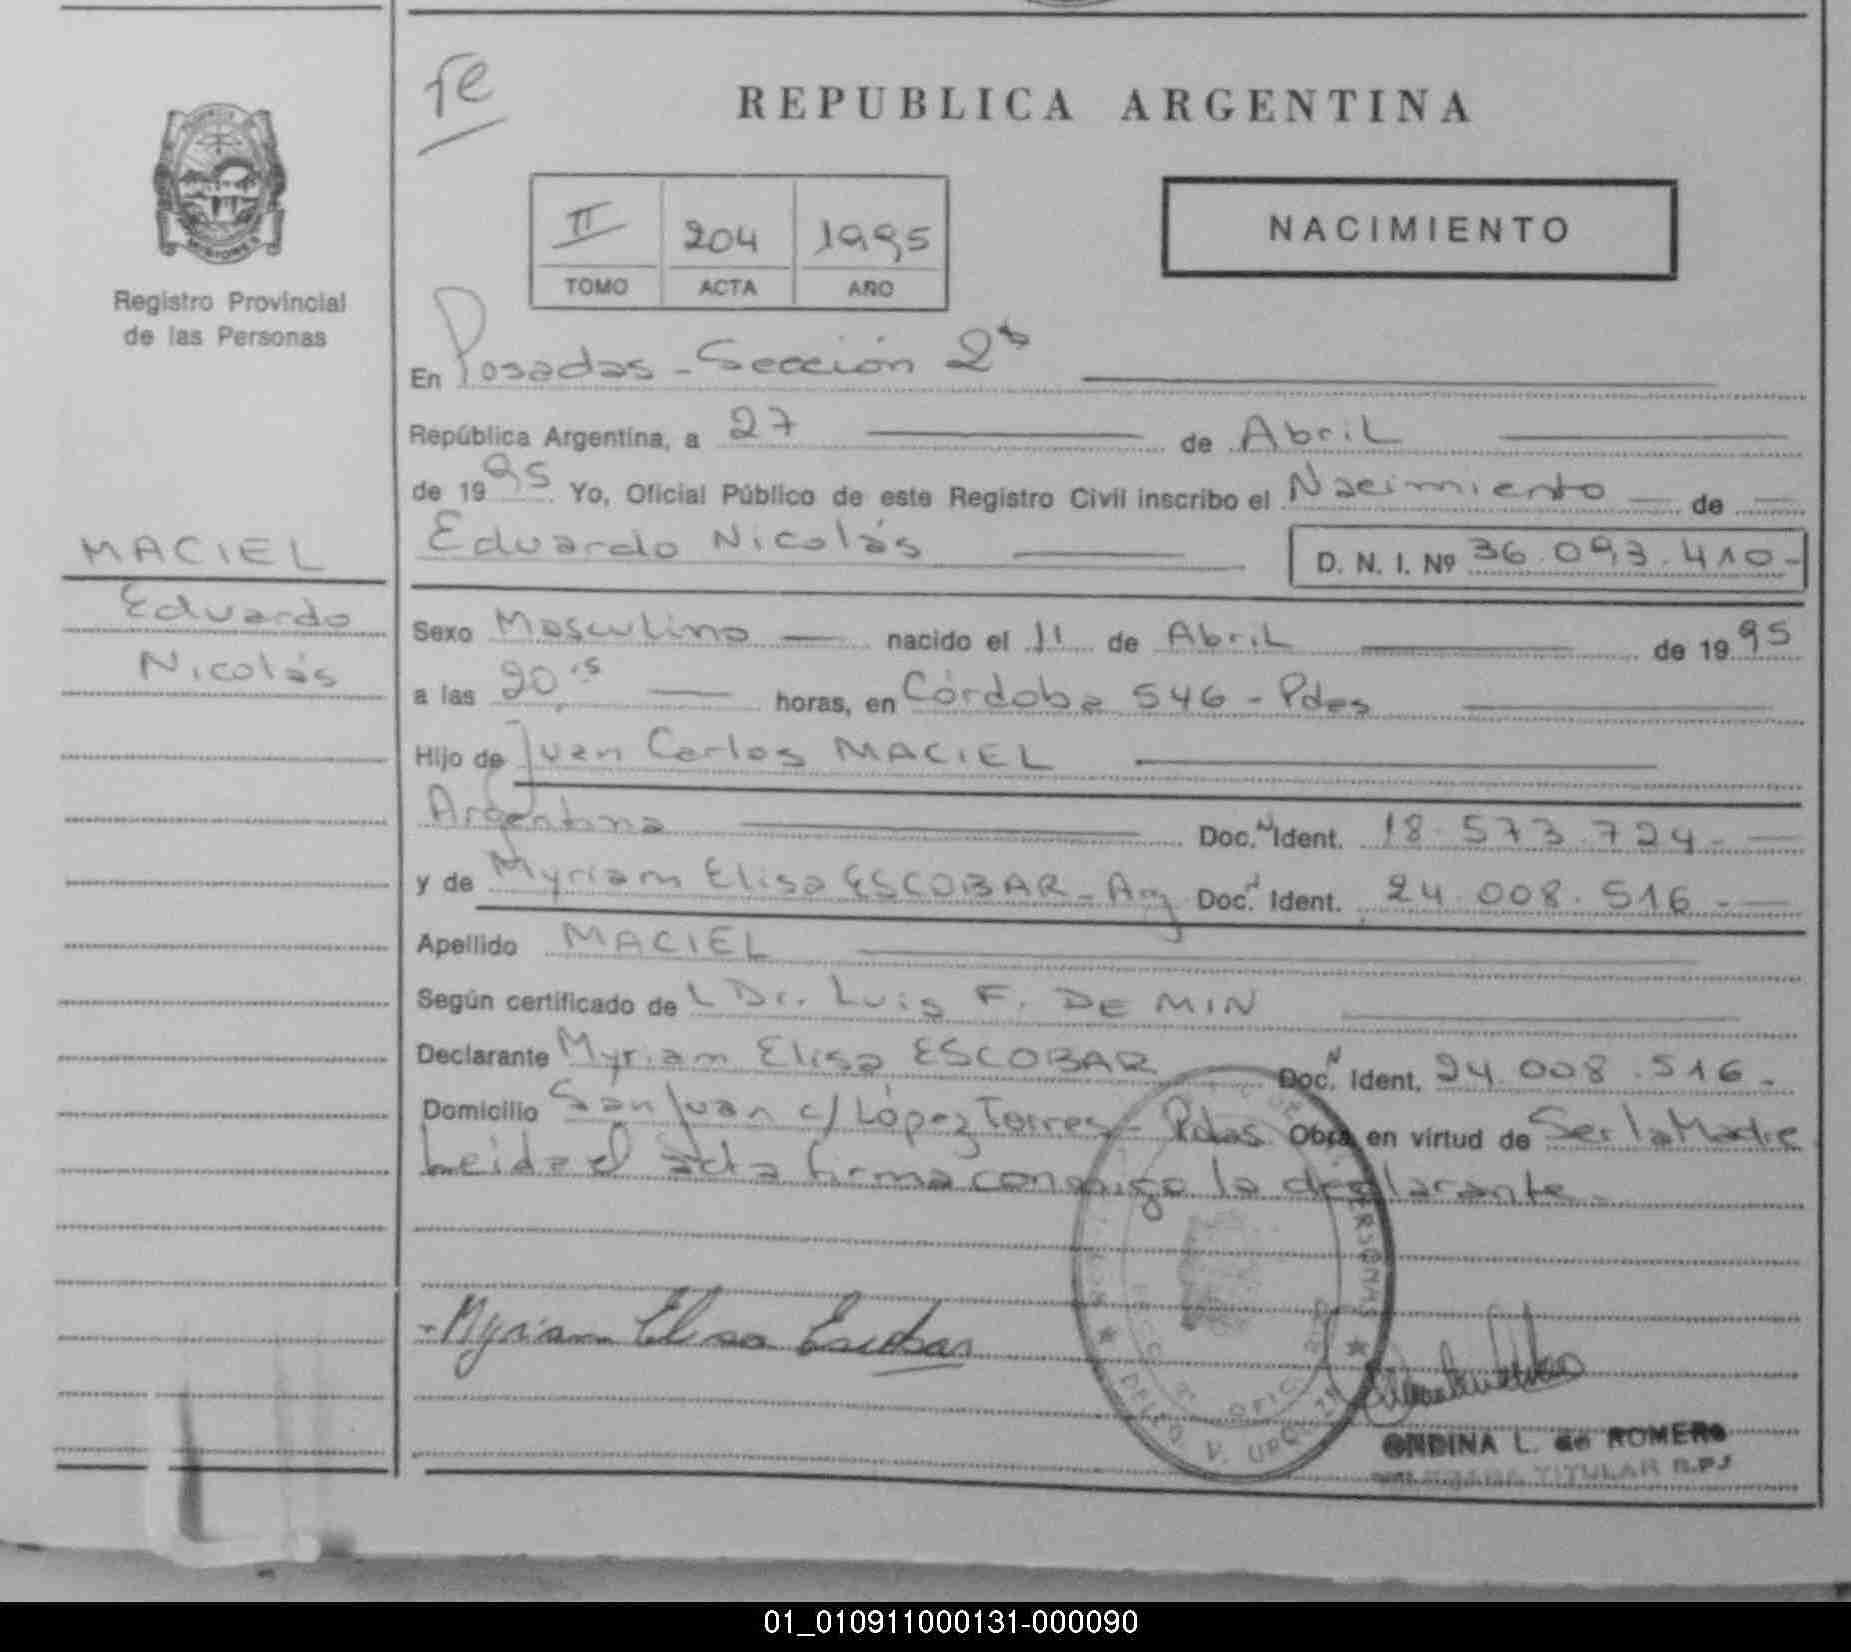 fe
REPUBLICA ARGENTINA
II 204 1995
TOMO ACTA AÑO
NACIMIENTO
MISIONES
Registro Provincial
de las Personas
En Posadas - Sección 2ª
República Argentina, a 27 de Abril
de 1995 Yo, Oficial Público de este Registro Civil inscribo el Nacimiento de
Eduardo Nicolás D. N. I. Nº 36.093.410-
MACIEL
Eduardo
Nicolás
Sexo Masculino nacido el 11 de Abril de 1995
a las 20,15 horas, en Córdoba 546 - Pdas
Hijo de Juan Carlos MACIEL
Argentina Doc. N Ident. 18.573.724.-
y de Myriam Elisa ESCOBAR - Arg Doc. N Ident. 24.008.516.-
Apellido MACIEL
Según certificado de L Dr. Luis F. DE MIN
Declarante Myriam Elisa ESCOBAR Doc. N Ident. 24.008.516.-
Domicilio San Juan c/ López Torres - Pdas. Obra en virtud de Ser la Madre
Leida el acta firma conmigo la declarante.
- Myriam Elisa Escobar
ONDINA L. de ROMERO
TITULAR R.P.
01_010911000131-000090